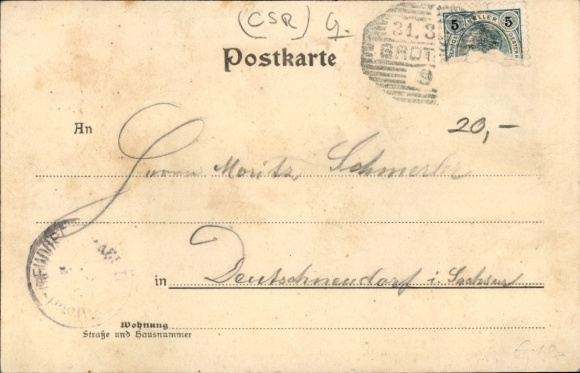 (CSR) G.
5 HELLER 5
31. 3
GROT
9
Postkarte
20,-
An
Herrn Moritz Schmerler
in Deutschneudorf i. Sachsen
Wohnung
Straße und Hausnummer